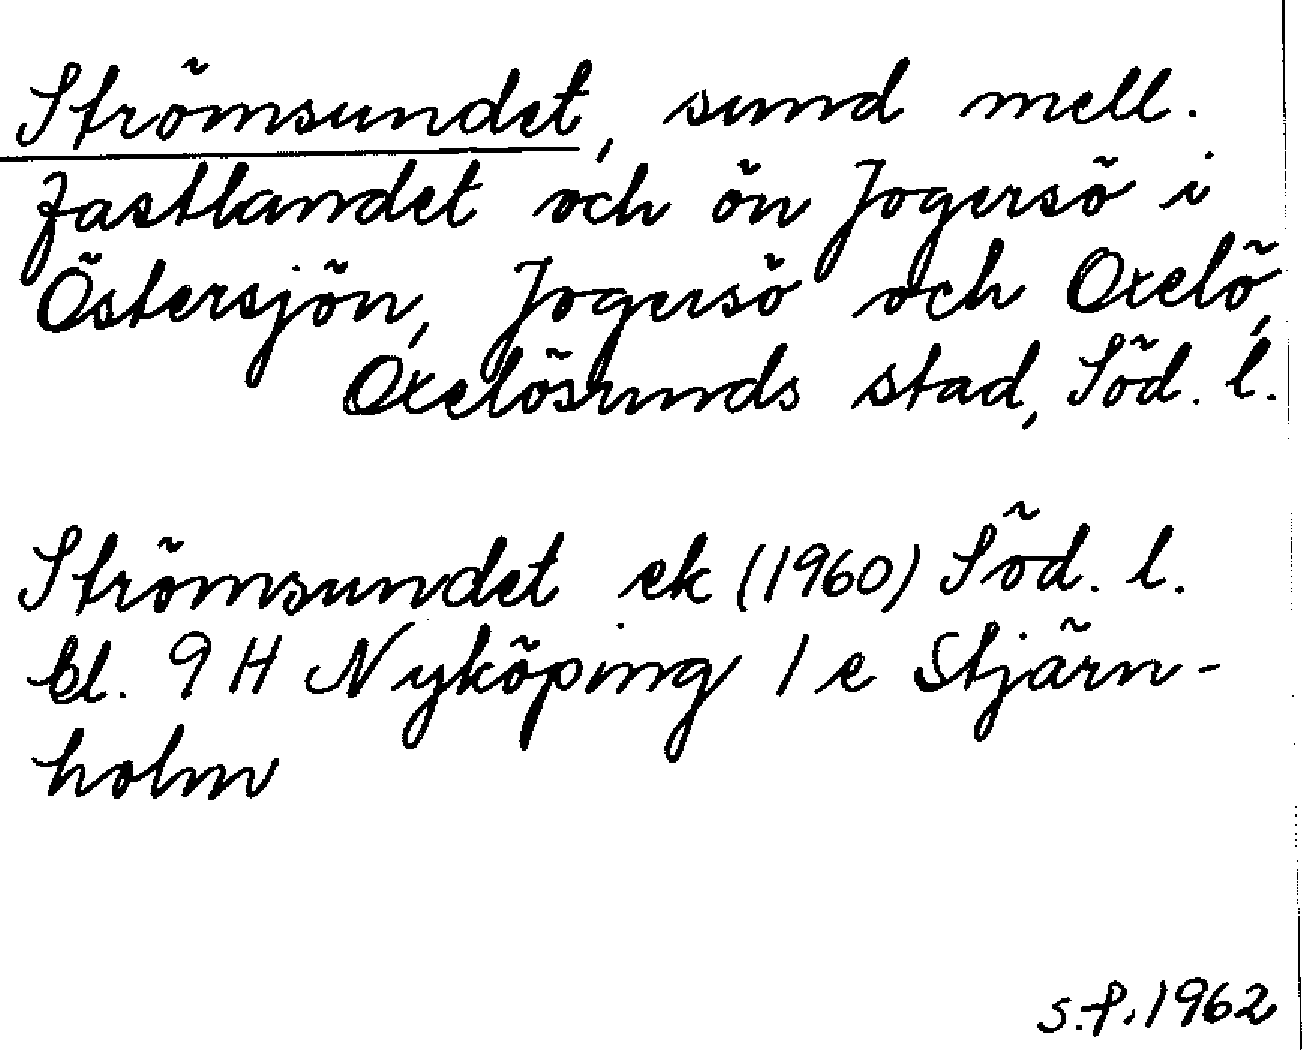 Strömsundet, sund mell.
fastlandet och ön Jogersö i
Östersjön, Jogersö och Oxelö,
Oxelösunds stad, Söd. l.
Strömsundet ek (1960) Söd. l.
bl. 9 H Nyköping 1 e Stjärn-
holm
S.P. 1962